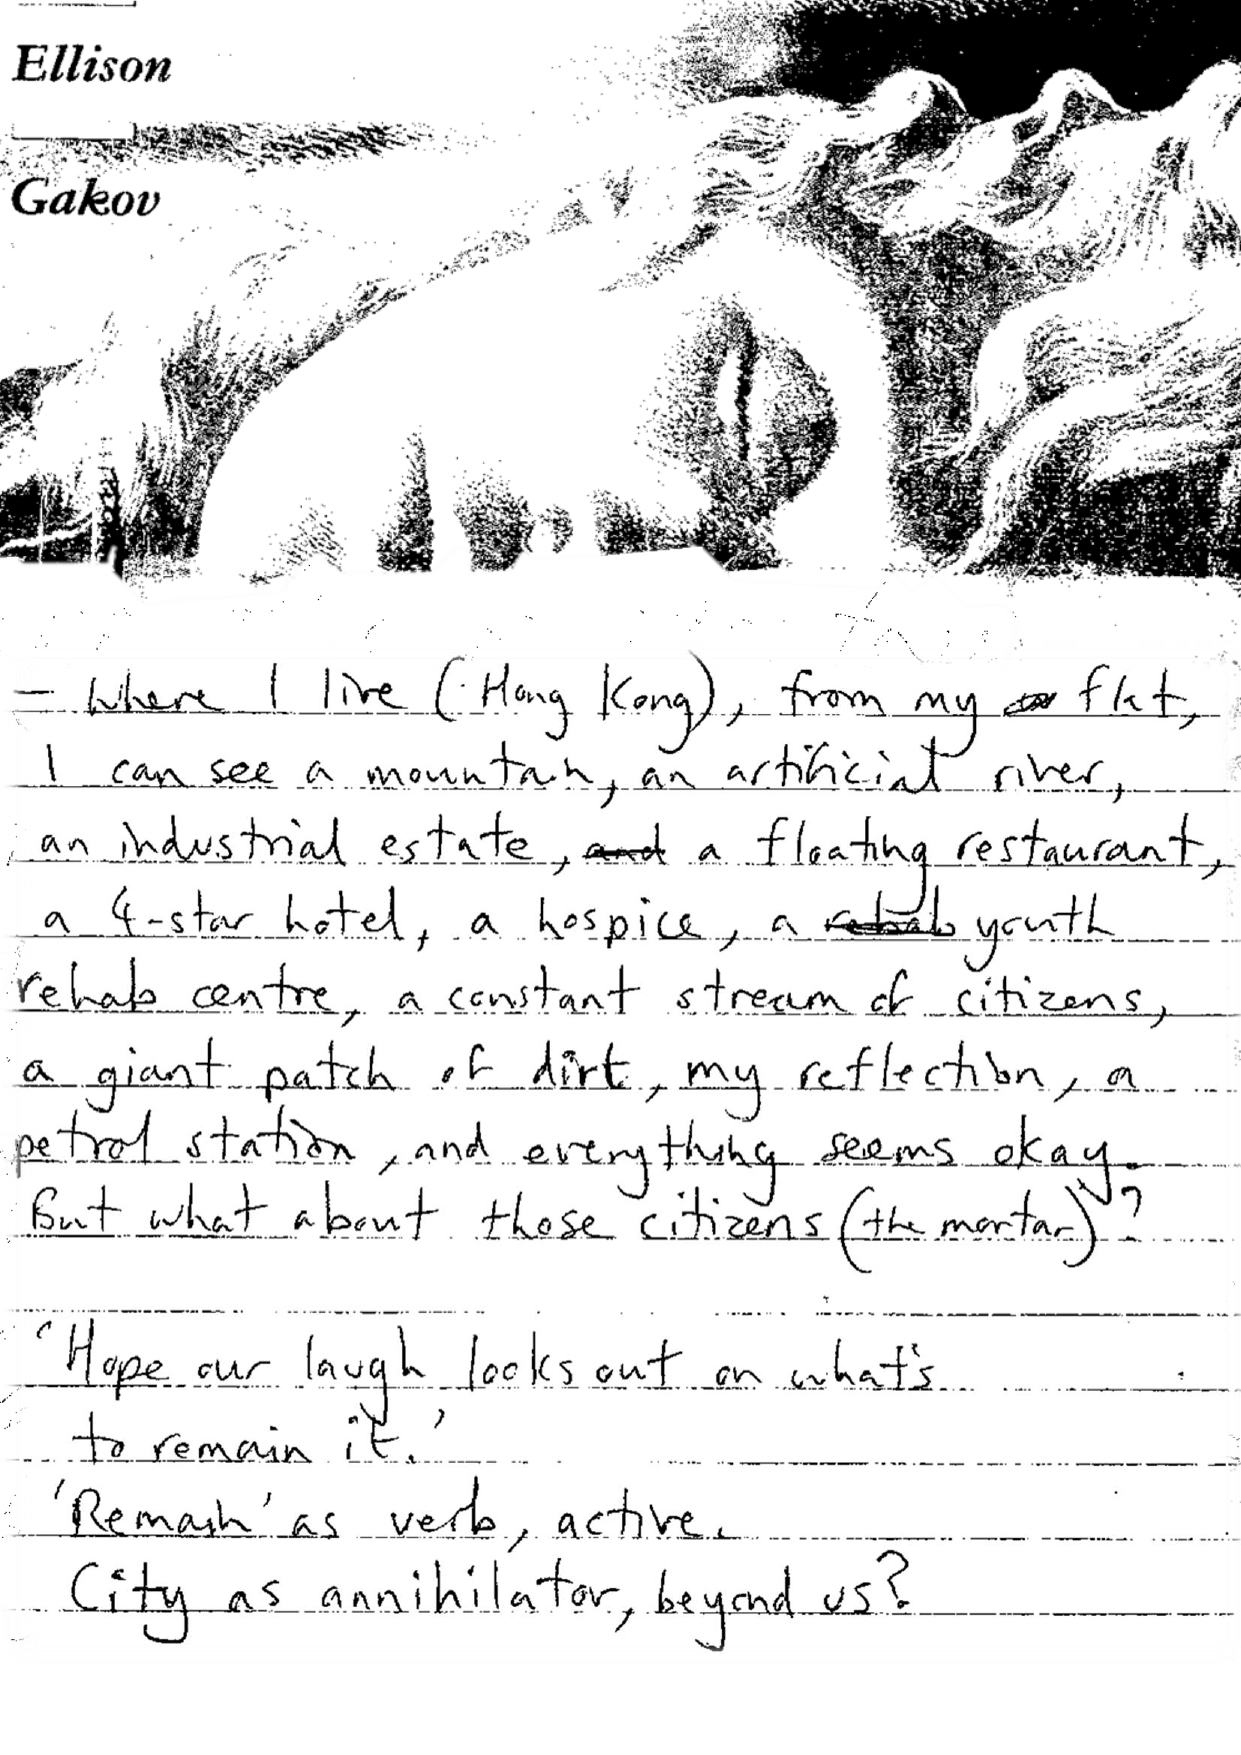 Ellison
Gakov
– Where I live (Hong Kong), from my flat,
I can see a mountain, an artificial river,
an industrial estate, and a floating restaurant,
a 4-star hotel, a hospice, a rehab youth
rehab centre, a constant stream of citizens,
a giant patch of dirt, my reflection, a
petrol station, and everything seems okay.
But what about those citizens (the mortar)?
'Hope our laugh looks out on what's
to remain it.'
'Remain' as verb, active.
City as annihilator, beyond us?